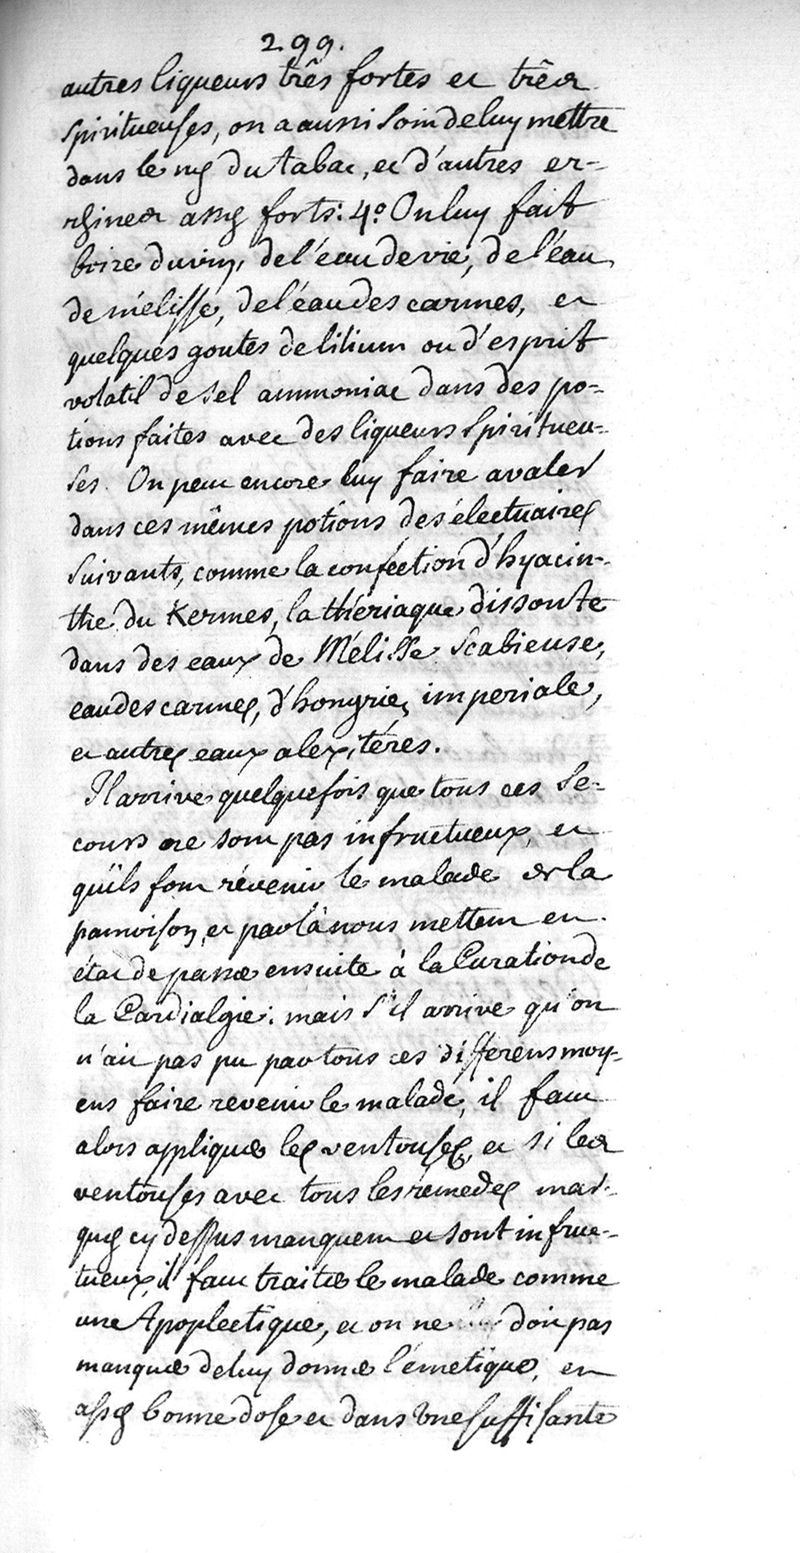 299.
autres liqueurs très fortes et très
spiritueuses, on a aussi soin de luy mettre
dans le nés du tabac, et d'autres er-
rhines assés forts: 4º. On luy fait
boire du vin, de l'eau de vie, de l'eau
de mélisse, de l'éau des carmes, et
quelques goutes de lilium ou d'esprit
volatil de sel ammoniac dans des po-
tions faites avec des liqueurs spiritueu-
ses. On peut encore luy faire avaler
dans ces mêmes potions des électuaires
suivants, comme la conféction d'hyacin-
the du Kermes, la thériaque dissoute
dans des eaux de Mélisse Scabieuse,
eau des carmes, d'hongrie, imperiale,
et autres eaux alexitéres.
Il arrive quelquefois que tous ces se-
cours ne sont pas infructueux, et
qu'ils font révenir le malade de la
pamoison, et par là nous mettent en
état de passer ensuite à la Curation de
la Cardialgie: mais s'il arrive qu'on
n'ait pas pu par tous ces differens moy-
ens faire revenir le malade, il faut
alors appliquer les ventouses, et si les
ventouses avec tous les rémedes mar-
qués cy dessus manquent et sont infruc-
tueux, il faut traiter le malade comme
une Apoplectique, et on ne doit pas
manquer de luy donner l'émetique, en
assés bonne dose et dans une suffisante